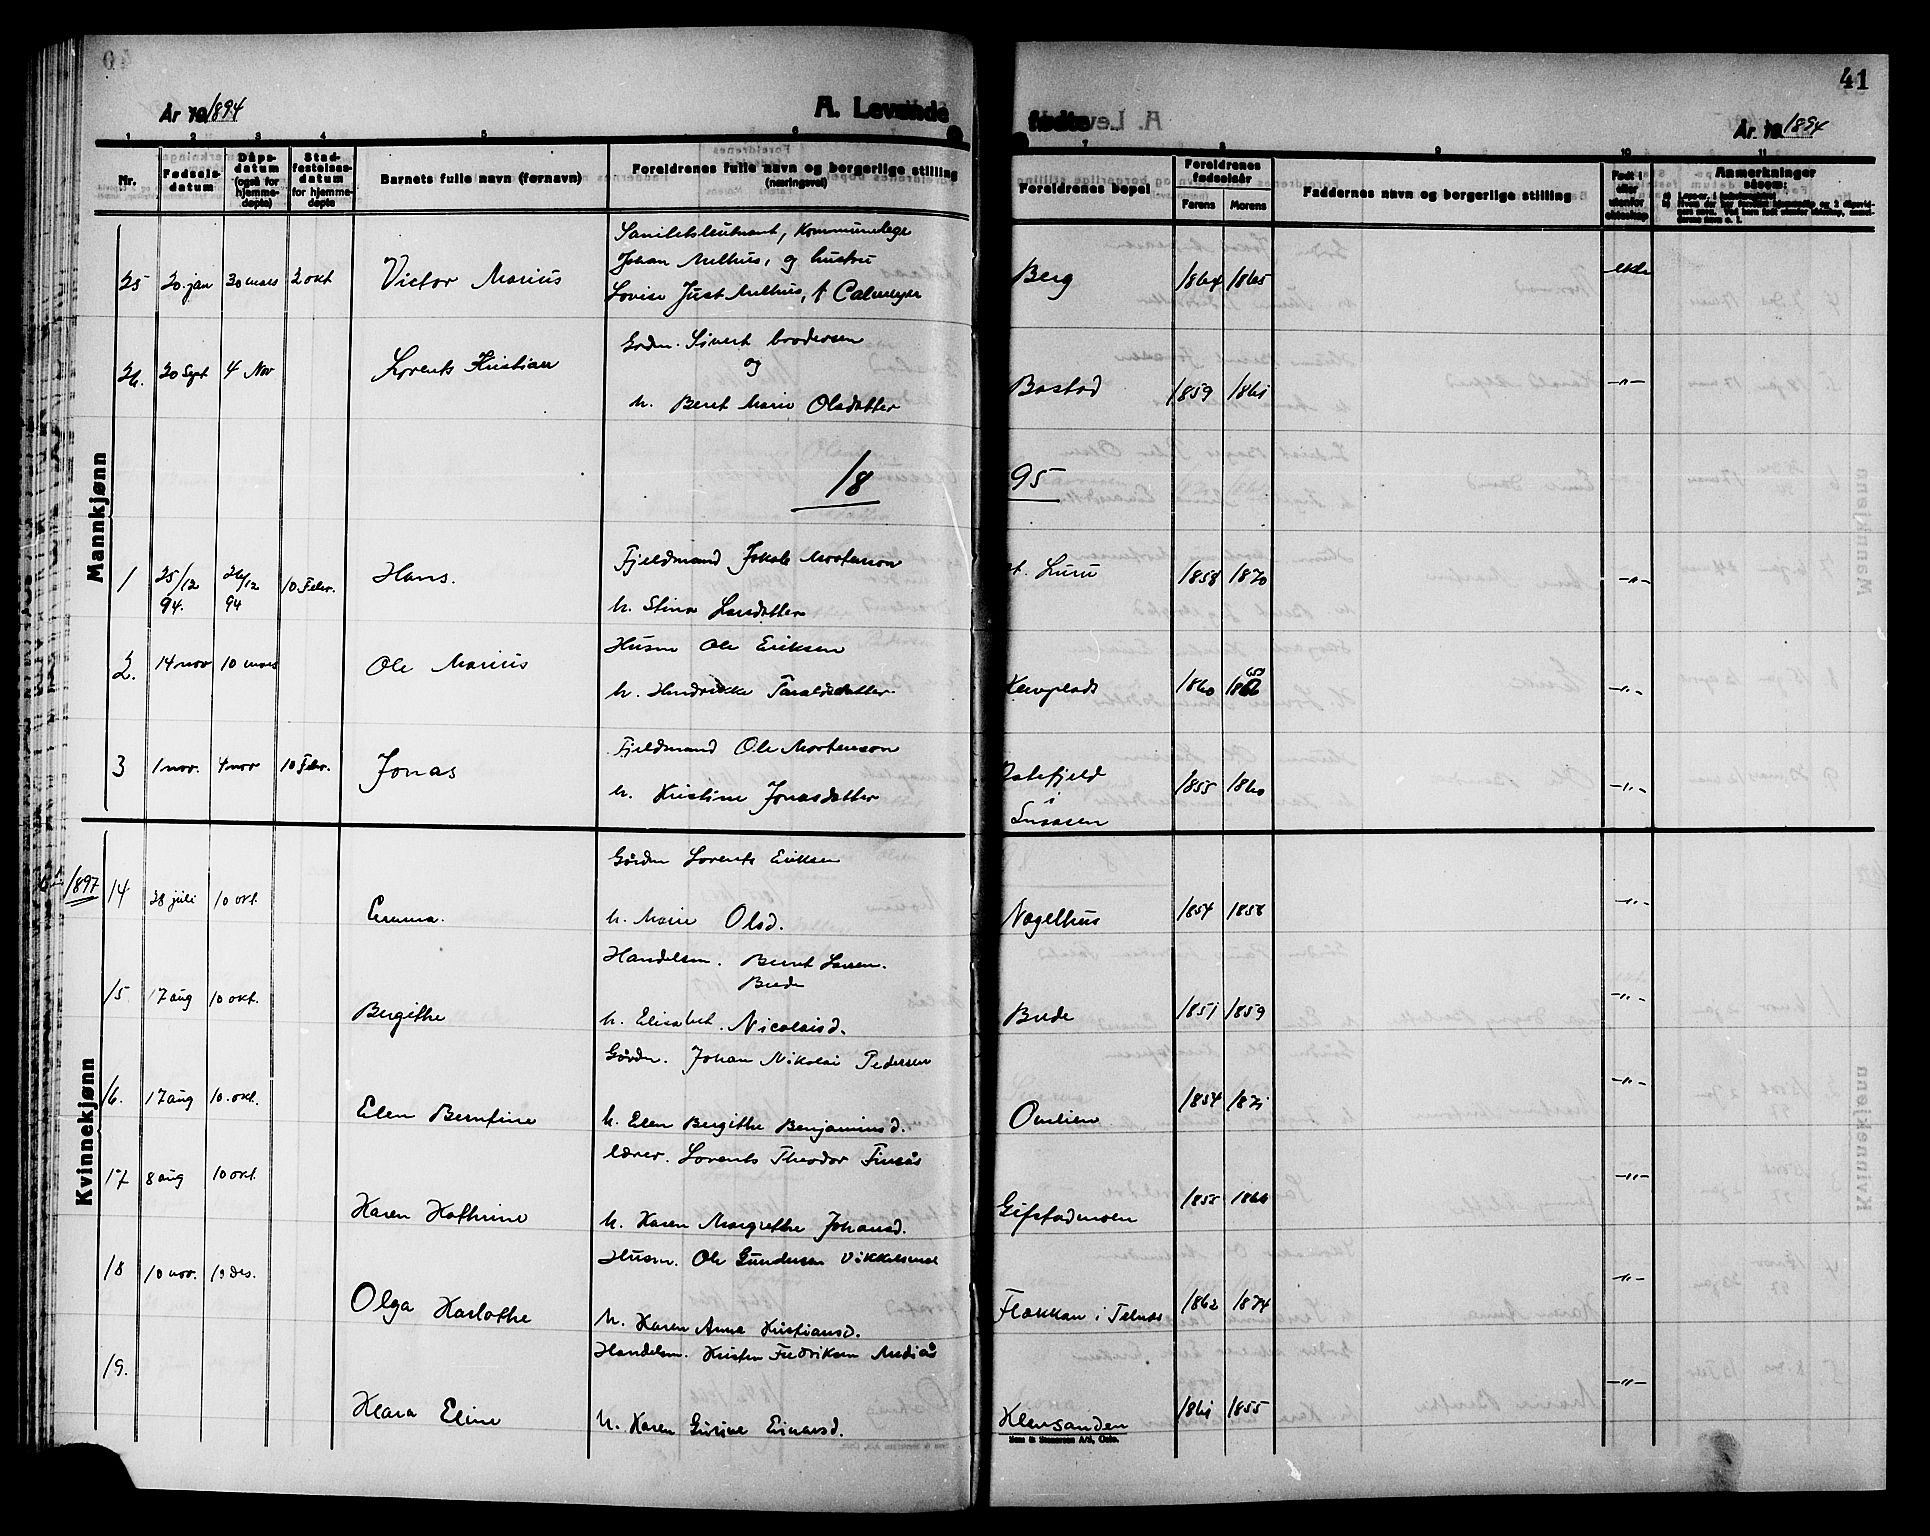 41
År 1894
A. Levende fødte
År 1894
1 2 3 4 5 6 7 8 9 10 11
Nr.
Fødselsdatum
Dåpsdatum (også for hjemmedøpte)
Stadfestelsesdatum for hjemmedøpte
Barnets fulle navn (førnavn)
Foreldrenes fulle navn og borgerlige stilling (næringsvei)
Foreldrenes bopel
Foreldrenes fødselsår
Farens
Morens
Faddernes navn og borgerlige stilling
Født i eller utenfor ekteskap
Anmerkninger såsom:
Mannkjønn
Sanitetsleutnant, Kommunelæge
25 20 jan 30 mars 2 okt Victor Marius Johan Melhus, og hustru Berg 1864 1865
Lovise Just Melhus, f Calmeyer
Grdm. Sivert Brodersen
26. 20 Sept 4 Nov Lorents Kristian og Bostad 1859 1861 -"-
h. Beret Marie Olsdatter
18 95
1 25/12 94. 26/12 94 10 Febr. Hans. Fjeldmand Jakob Mortenson 1858 1870 -"-
h. Stina Larsdatter
2. 14 nov 10 mars Ole Marius Husm Ole Eriksen 1860 -"-
h. Hendrikke Taraldsdatter
3 1 nov. 4 nov 10 Febr. Jonas Fjeldmand Ole Mortenson Ostefjeld i Snaasen 1855 1860 -"-
h. Kristine Jonasdatter
Kvinnekjønn
1897
14 28 juli 10 okt. Emma. Gårdm Lorents Eriksen Nagelhus 1854 1858 -"-
h. Marie Olsd.
15 17 aug 10 okt. Bergithe Handelsm. Bernt Larsen. Brede Brede 1851 1859 -"-
h. Elisabet Nicolaisd.
16. 17 aug 10. okt. Elen Berntine Gårdm. Johan Nikolai Pedersen 1854 1871 -"-
h. Elen Bergithe Benjaminsd.
17 8 aug 10 okt. Karen Kathrine Lærer. Lorents Theodor Finsås Gifstadmoen 1855 -"-
h. Karen Margrethe Johansd.
18 10 nov. 19 des. Olga Karlothe Husm. Ole Gundersen Flakkan i Telnes 1862 1874 -"-
h. Karen Anna Kristiansd.
19. Klara Eline Handelsm. Kristen Fredriksen Medjås Klensanden 1861 1855 -"-
h. Karen Gurine Einarsd.
Sem & Stenersen A/S, Oslo.